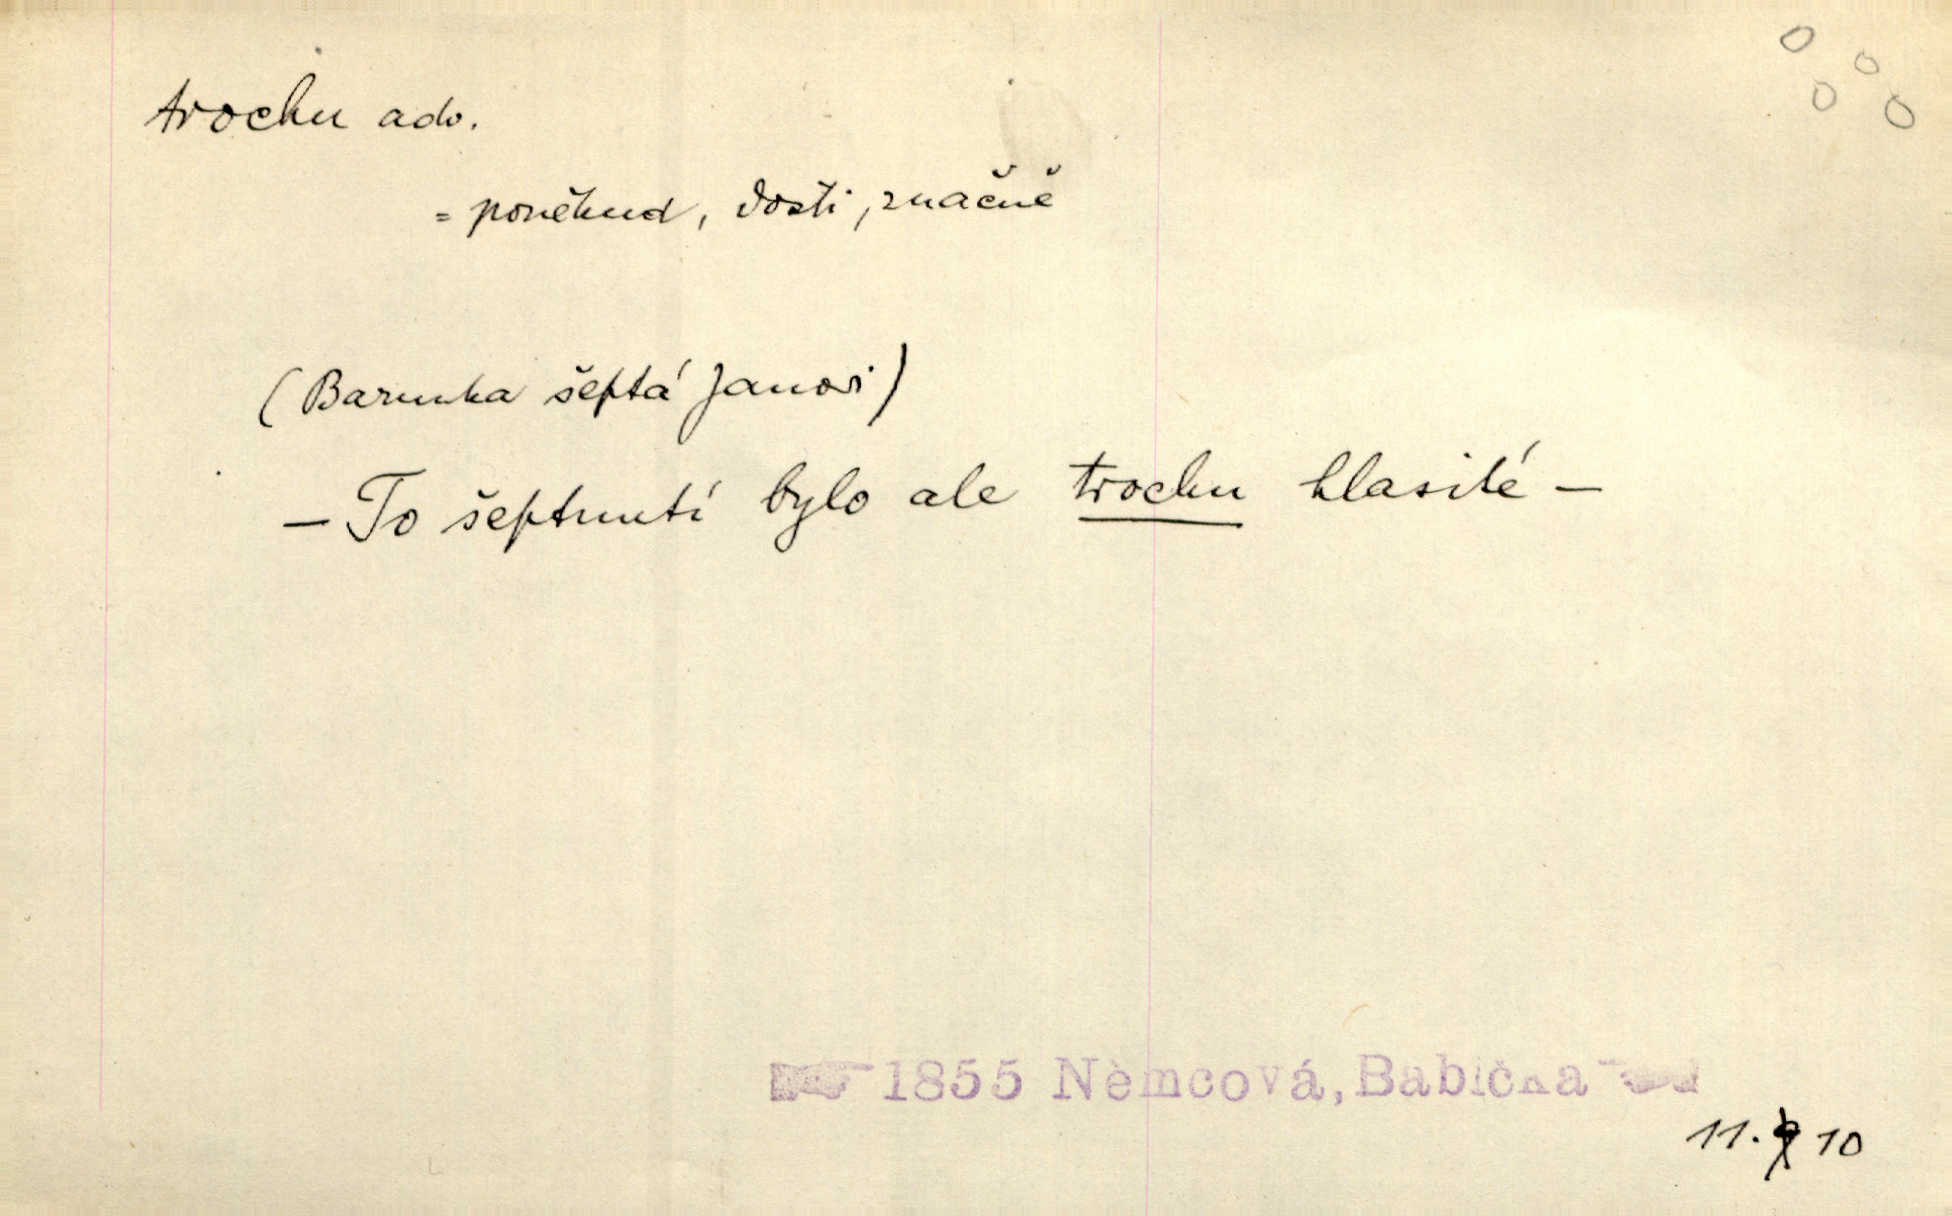 trochu adv.
= poněkud, dosti, značně
(Barunka šeptá Janovi)
— To šeptnutí bylo ale trochu hlasité —
1855 Němcová, Babička
11. 10